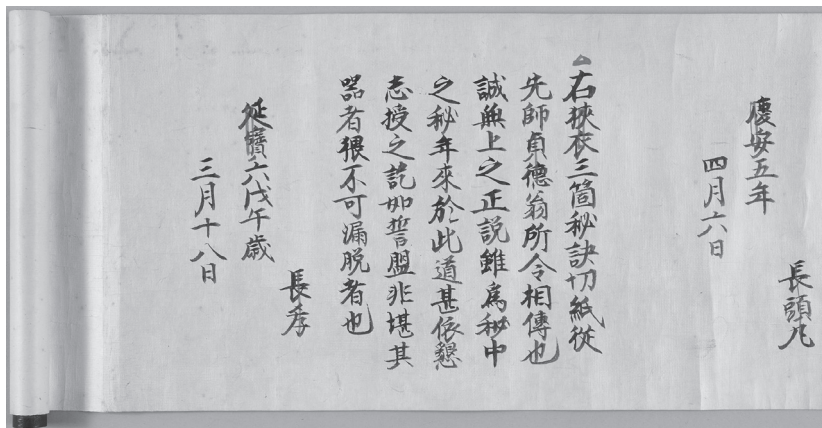 慶安五年
四月六日
長頭丸
右狭衣三箇秘訣切紙従
先師貞徳翁所令相傳也
誠無上之正説雖為秘中
之秘年来於此道甚依懇
志授之訖如誓盟非堪其
器者猥不可漏脱者也
長孝
延寶六戊午歳
三月十八日